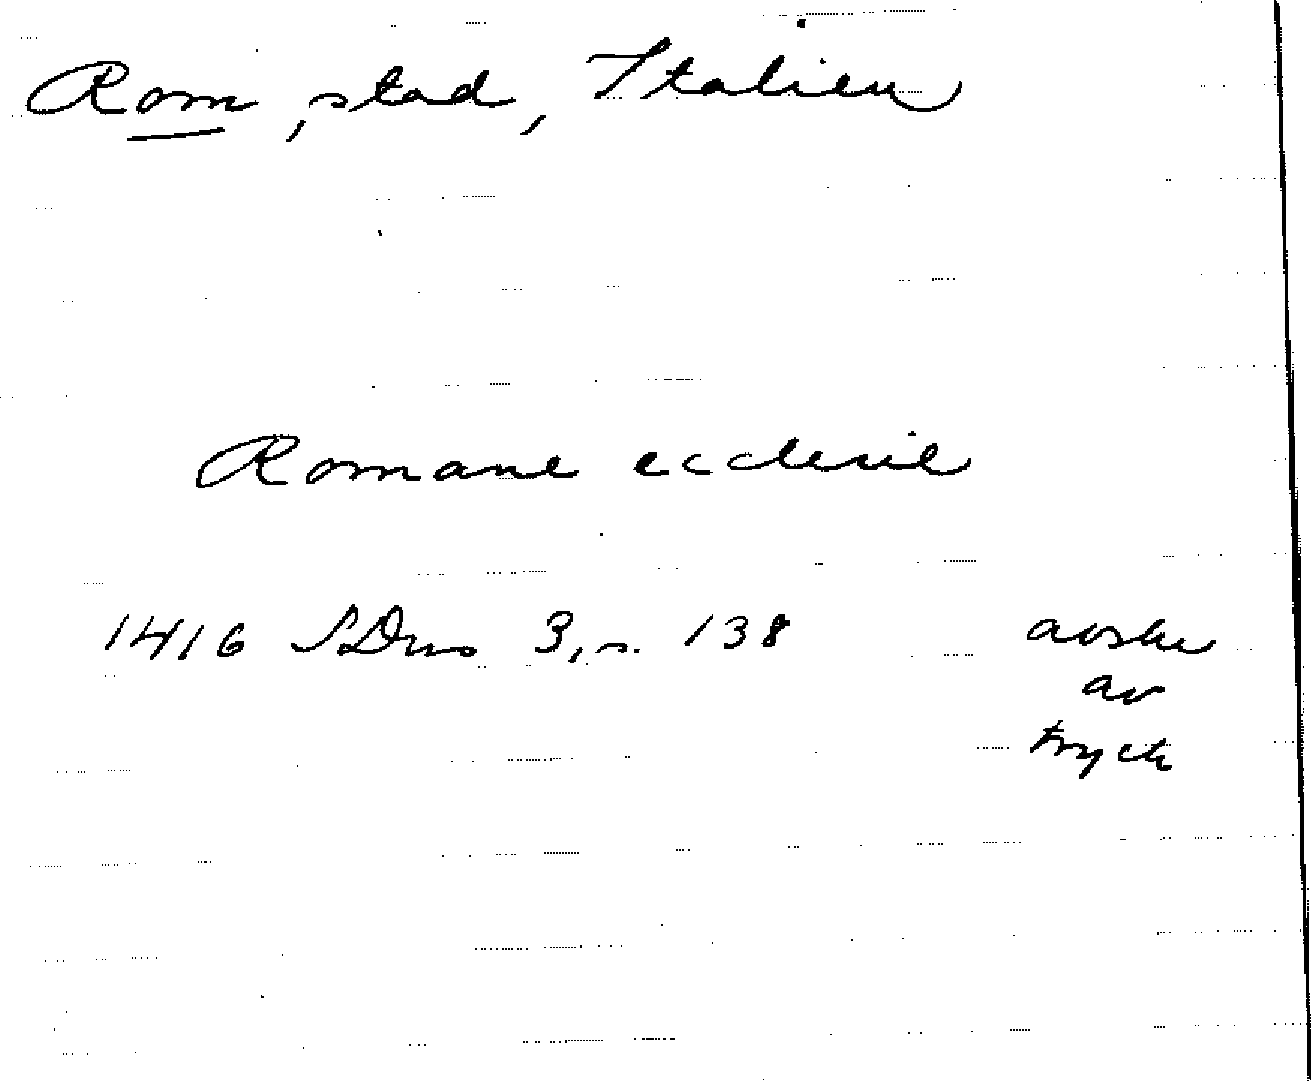 Rom, stad, Italien
Romane ecclesie
1416 SDns 3, s. 138 avskr
av
tryck